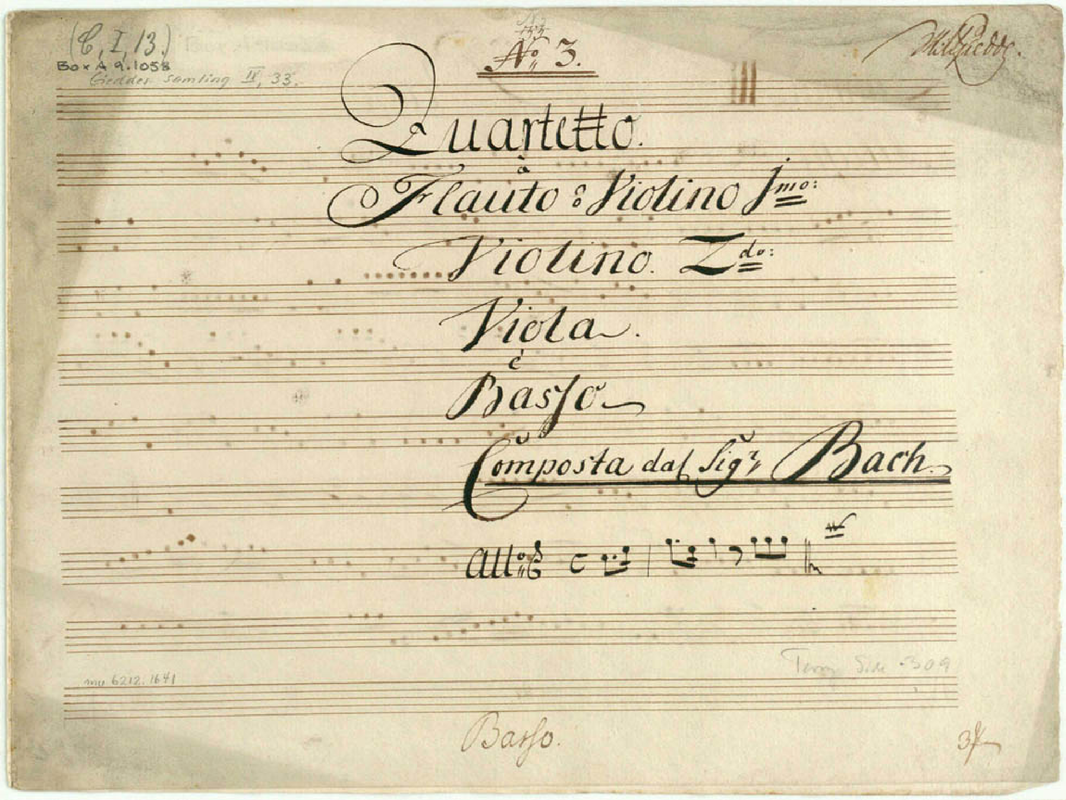 (C, I, 13.)
Box A 9.1058
Giedde's samling IV, 33.
No. 3.
Quartetto.
à
Flauto o Violino Jmo:
Violino. 2do:
Viola.
è
Basso
Composta dal Sigr. Bach.
Allo:
Terry Side 309
mu 6212.1641
Basso.